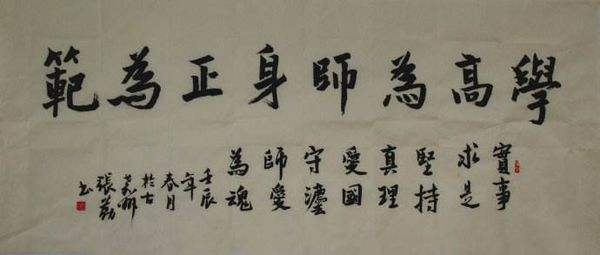 學高為師身正為範
實事
求是
堅持
真理
愛國
守灋
師愛
為魂
壬辰
年
春月
於古
張
書